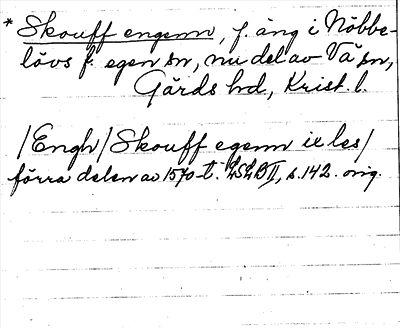 * Skouff engenn, f. äng i Nöbbe-
lövs f. egen sn, nu del av Vä sn,
Gärds hd, Krist. l.
/Engh/ Skouff egenn ix les/
förra delen av 1570-t. LSLB II, s. 142. orig.